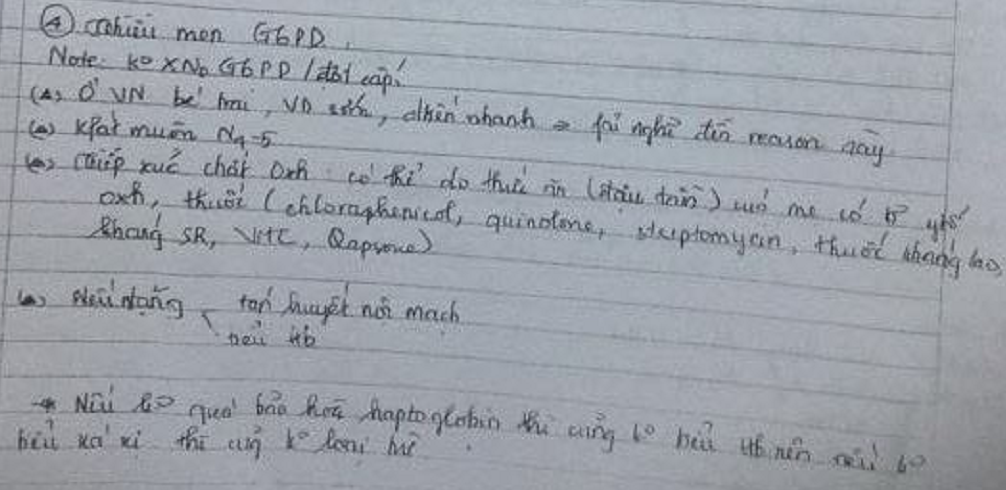 ④ Thiếu men G6PD.
Note: ko XNo G6PD / đợt cấp.
(A) Ở VN bé trai, VD sớm, diễn nhanh → fải nghĩ đến reason này
(A) Kfát muộn N4-5
(A) Tiếp xúc chất Oxh: có thể do thức ăn (đậu tằm) mà mẹ có tx yếu tố
oxh, thuốc (chloraphenicol, quinolone, steptomycin, thuốc kháng lao,
kháng SR, VitC, Dapsone)
(A) Nếu nặng tán huyết nội mạch
tiểu Hb
→ Nếu ko quá bão hoà haptoglobin thì cũng ko tiểu Hb nên nếu ko
tiểu xá xị thì cũng ko loại trừ.